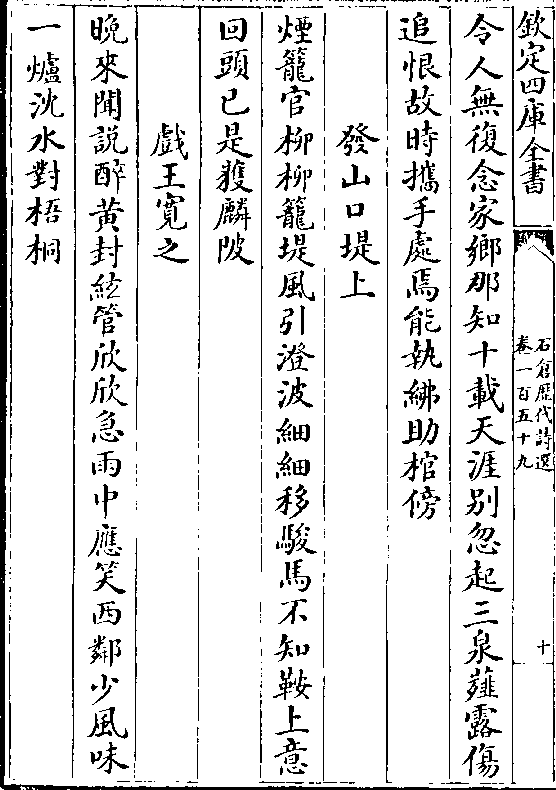 欽定四庫全書
石倉歷代詩選
卷一百五十九
十
令人無復念家鄉那知十載天涯别忽起三泉薤露傷
追恨故時攜手處焉能執紼助棺傍
發山口堤上
煙籠官柳柳籠堤風引澄波細細移駿馬不知鞍上意
回頭已是獲麟陂
戲王寛之
晚來聞說醉黄封絃管欣欣急雨中應笑西鄰少風味
一爐沈水對梧桐